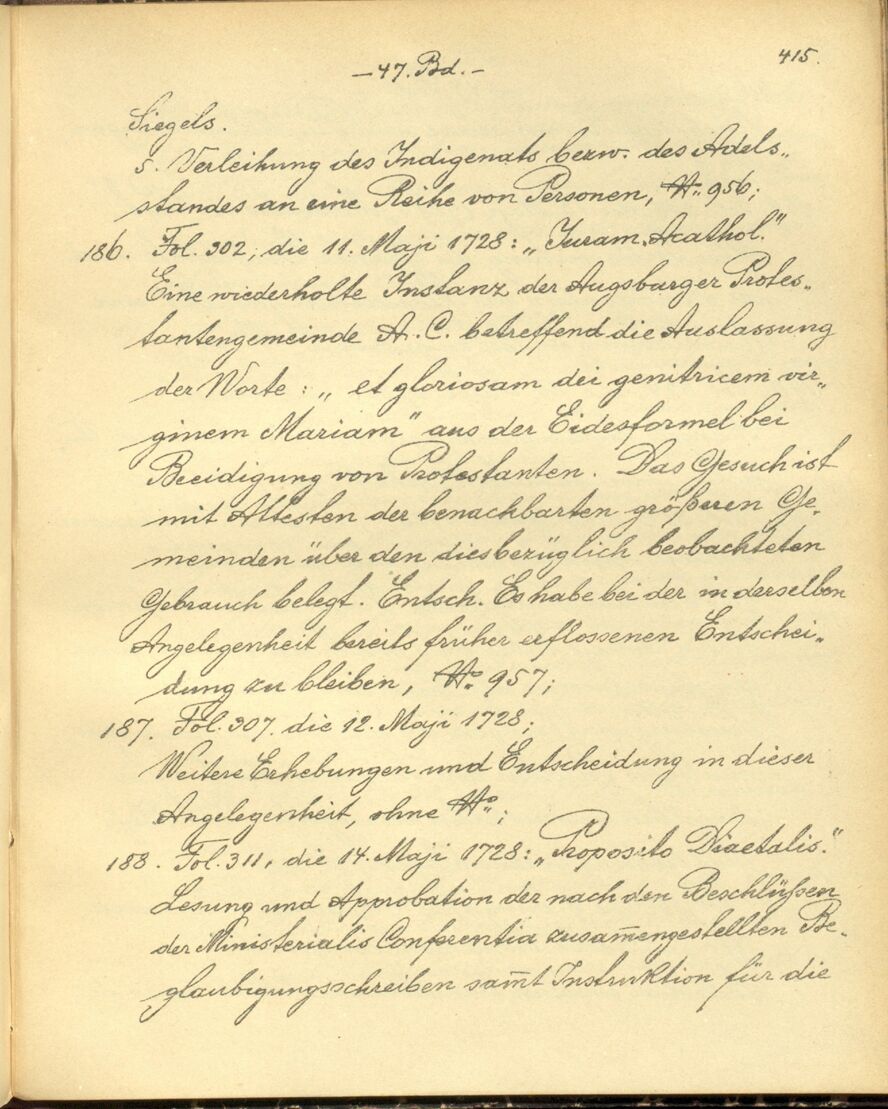 415.
– 47. Bd. –
Siegels.
5. Verleihung des Indigenats bezw. des Adels„
standes an eine Reihe von Personen, No. 956;
186. Fol. 302, die 11. Maji 1728: „Juram. Acathol."
Eine wiederholte Instanz der Augsburger Protes„
tantengemeinde A. C. betreffend die Auslassung
der Worte: „et gloriosam dei genitricem vir„
ginem Mariam" aus der Eidesformel bei
Beeidigung von Protestanten. Das Gesuch ist
mit Attesten der benachbarten größeren Ge„
meinden über den diesbezüglich beobachteten
Gebrauch belegt. Entsch. Es habe bei der in derselben
Angelegenheit bereits früher erflossenen Entschei„
dung zu bleiben, No. 957;
187. Fol. 307. die 12. Maji 1728;
Weitere Erhebungen und Entscheidung in dieser
Angelegenheit, ohne No.;
188. Fol. 311, die 14. Maji 1728: „Proposito Diaetalis."
Lesung und Approbation der nach den Beschlüßen
der Ministerialis Conferentia zusam̅engestellten Be„
glaubigungsschreiben sam̅t Instruktion für die